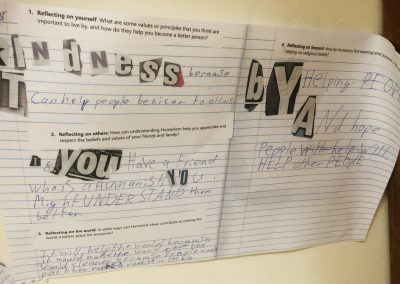 1. Reflecting on yourself: What are some values or principles that you think are
important to live by, and how do they help you become a better person?
kINDNESS because
IT
Can help people be nicer to others
2. Reflecting on others: How can understanding Humanism help you appreciate and
respect the beliefs and values of your friends and family?
you Have a Friend
who is a Humanist YOU
Might UNDERSTAND them
better.
3. Reflecting on the world: In what ways can Humanist ideas contribute to making the
world a better place for everyone?
It will help the world because
it would make the world
world cleaner because People would
put their rubbish in the bin
4. Reflecting on beyond: How do Humanists find meaning and
religious beliefs?
bY Helping PEOP
ANd hope
People will
HELP other PEOPLE